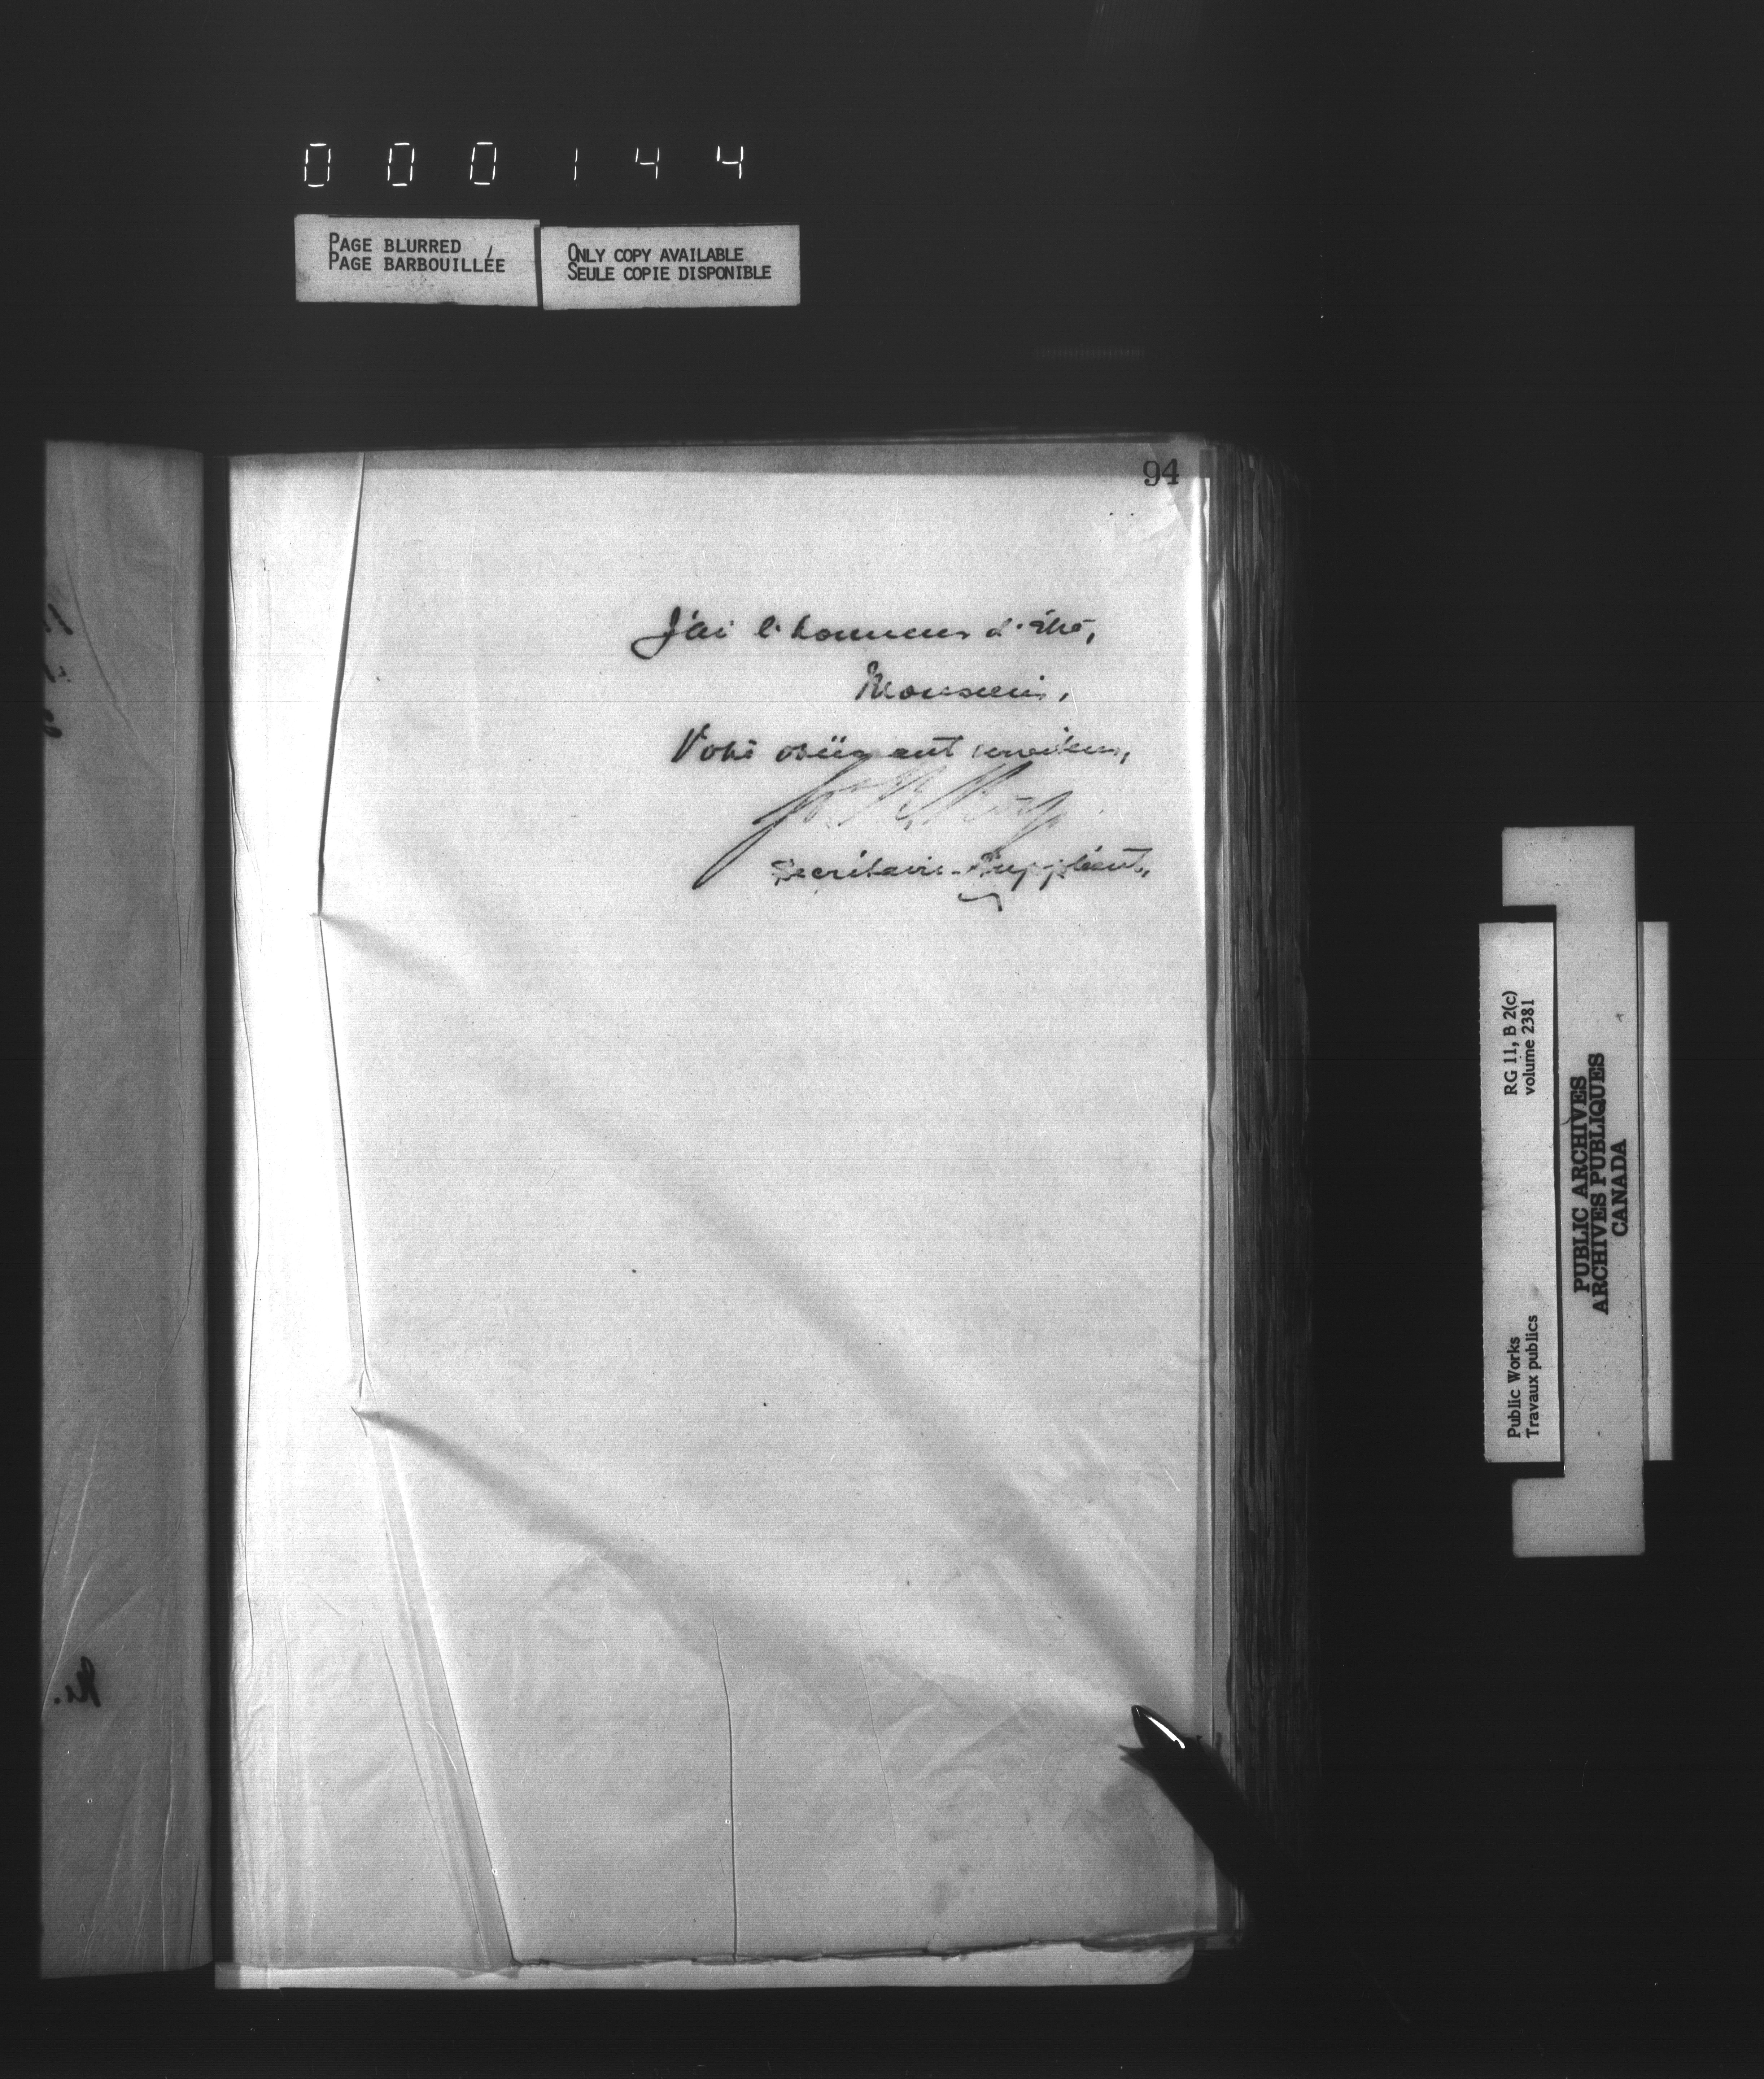 0 0 0 1 4 4
PAGE BLURRED
PAGE BARBOUILLÉE
ONLY COPY AVAILABLE
SEULE COPIE DISPONIBLE
94
J'ai l'honneur d'être,
Monsieur,
Votre obéissant serviteur,
Secrétaire-Suppléant,
RG 11, B 2(c)
volume 2381
Public Works
Travaux publics
PUBLIC ARCHIVES
ARCHIVES PUBLIQUES
CANADA